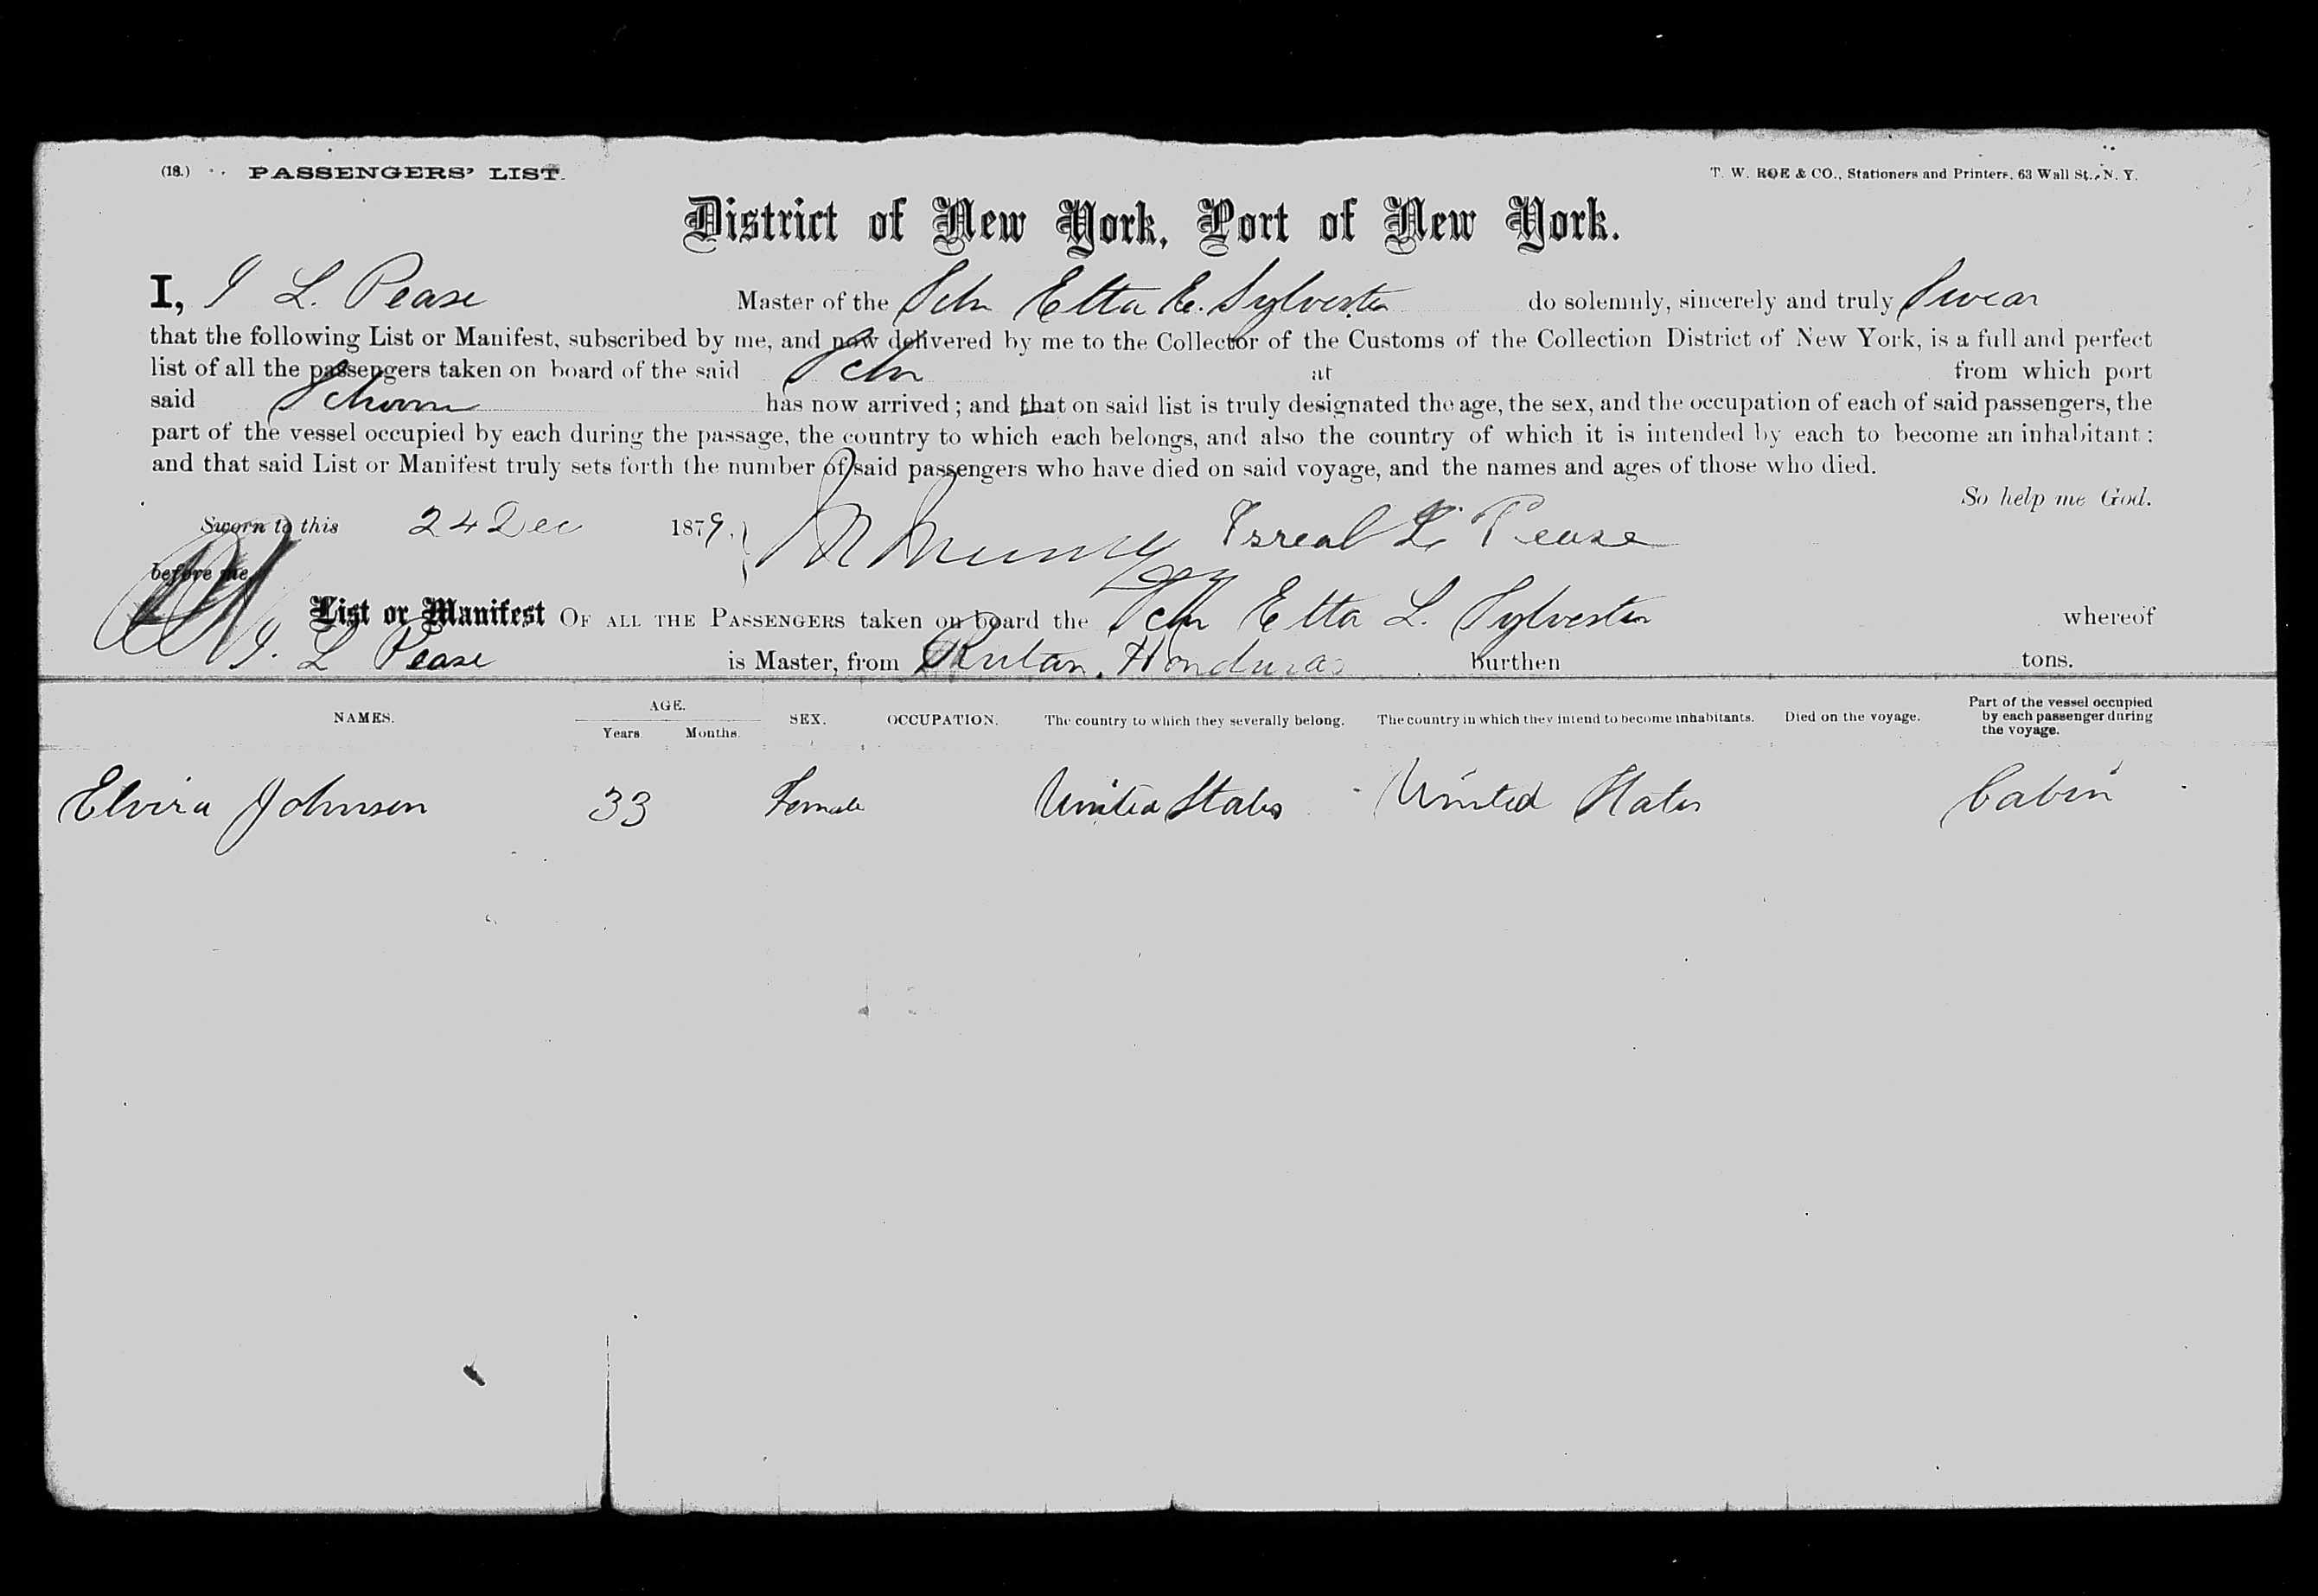 (18.) PASSENGERS' LIST. T. W. ROE & CO., Stationers and Printers, 63 Wall St., N. Y.
District of New York, Port of New York.
I, I L. Pease Master of the Schr Etta E. Sylvester do solemnly, sincerely and truly Swear
that the following List or Manifest, subscribed by me, and now delivered by me to the Collector of the Customs of the Collection District of New York, is a full and perfect
list of all the passengers taken on board of the said Schr at from which port
said has now arrived; and that on said list is truly designated the age, the sex, and the occupation of each of said passengers, the
part of the vessel occupied by each during the passage, the country to which each belongs, and also the country of which it is intended by each to become an inhabitant:
and that said List or Manifest truly sets forth the number of said passengers who have died on said voyage, and the names and ages of those who died.
So help me God.
Sworn to this 24 Dec 1879. Isreal L. Pease
before me,
List or Manifest OF ALL THE PASSENGERS taken on board the Schr Etta L. Sylvester whereof
I. L Pease is Master, from Rutan, Honduras burthen tons.
NAMES. AGE. Years. Months. SEX. OCCUPATION. The country to which they severally belong. The country in which they intend to become inhabitants. Died on the voyage. Part of the vessel occupied by each passenger during the voyage.
Elvira Johnson 33 Female United States United States Cabin